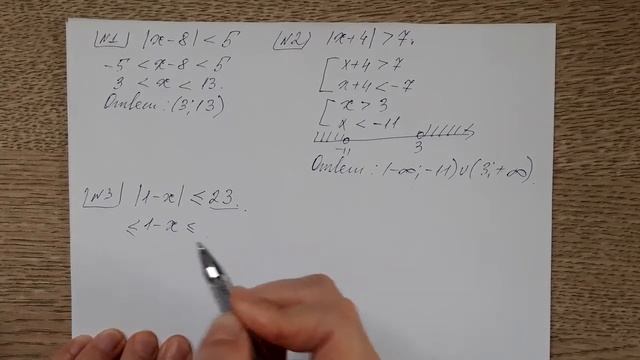 №1 |x-8| < 5
-5 < x-8 < 5
3 < x < 13.
Ответ: (3; 13)
№2) |x+4| > 7.
[ x+4 > 7
x+4 < -7
[ x > 3
x < -11
-11 3
Ответ: (-∞; -11) ∪ (3; +∞).
№3 |1-x| ≤ 23.
≤ 1-x ≤